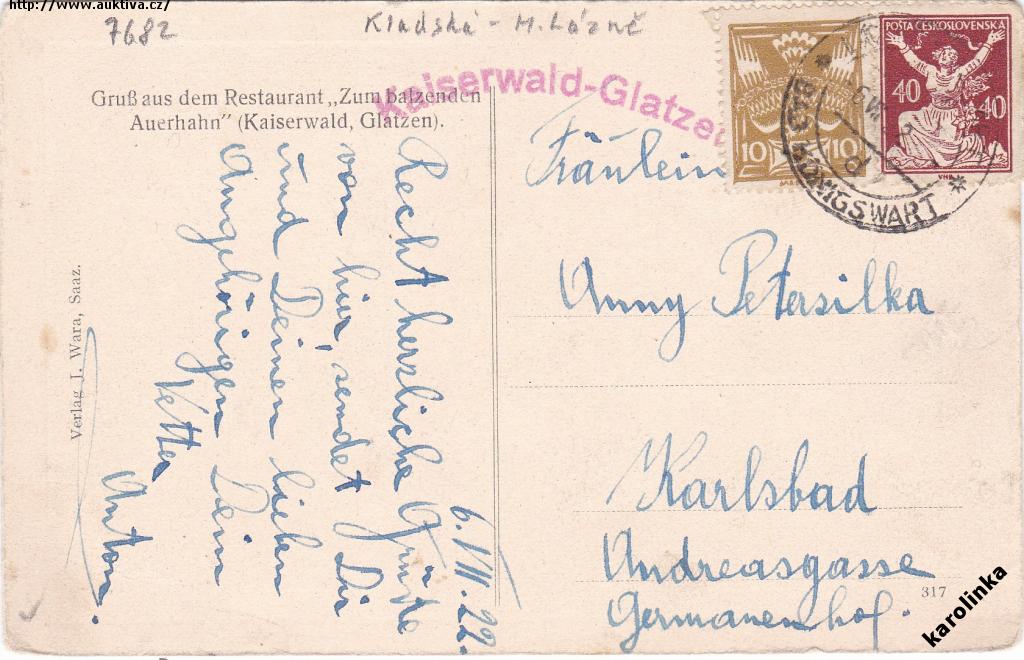 http://www.auktiva.cz/
7682
Kladská - M. Lázně
Gruß aus dem Restaurant „Zum balzenden
Auerhahn" (Kaiserwald, Glatzen).
Kaiserwald-Glatzen
6. VII. 22.
Recht herzliche Grüße
von hier, sendet Dir
und Deinen lieben
Angehörigen Dein
Vetter
Anton.
Verlag J. Wara, Saaz.
10 10
POŠTA ČESKOSLOVENSKÁ
40 40
KÖNIGSWART
Fräulein
Anny Petersilka
Karlsbad
Andreasgasse
Germanenhof.
317
karolinka